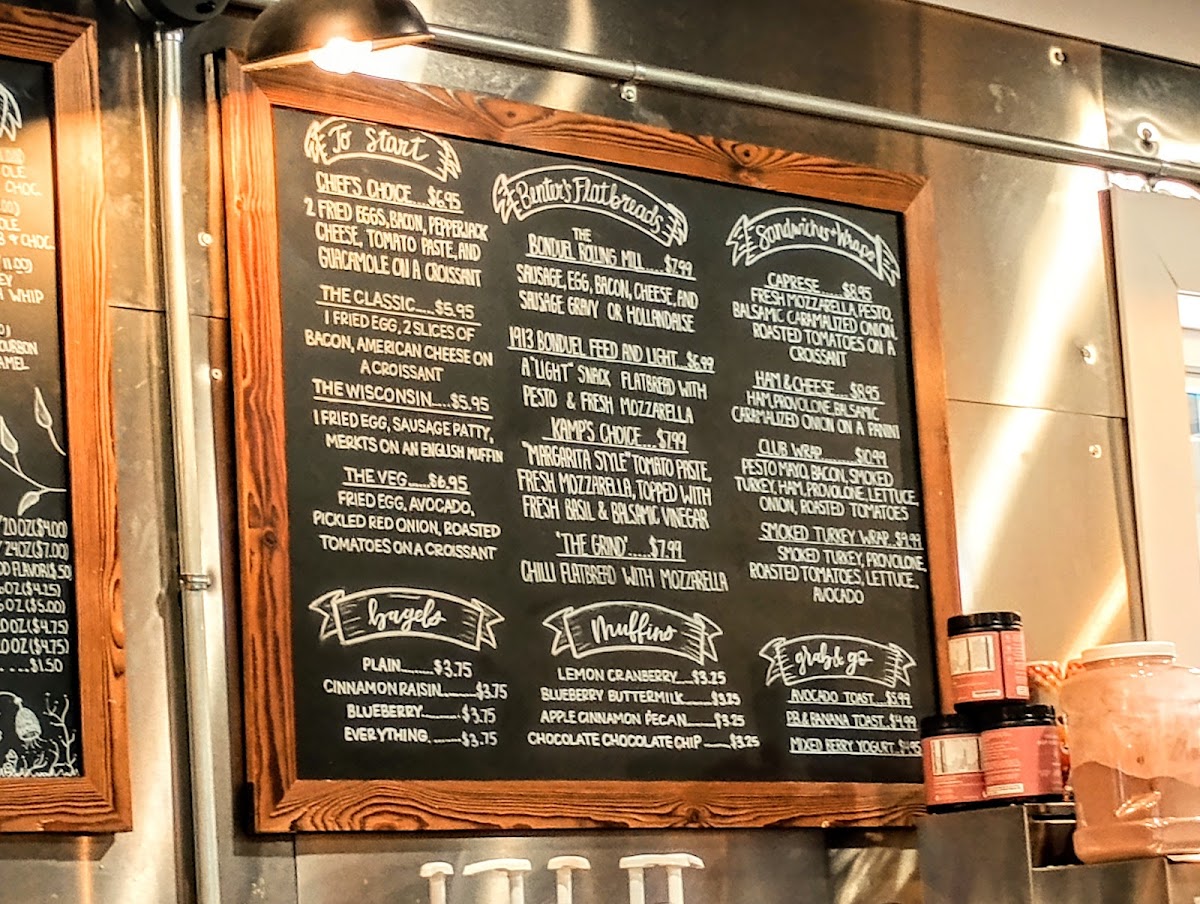 OLE
CHOC.
OLE
B & CHOC.
EY
WHIP
OURBON
AMEL
20 OZ ($4.00)
24OZ ($7.00)
OD FLAVOR($.50)
6OZ ($4.25)
6OZ ($5.00)
0 OZ ($4.75)
0 OZ ($4.75)
$1.50
To Start
CHIEF'S CHOICE....$6.95
2 FRIED EGGS, BACON, PEPPERJACK
CHEESE, TOMATO PASTE, AND
GUACAMOLE ON A CROISSANT
THE CLASSIC.....$5.95
1 FRIED EGG, 2 SLICES OF
BACON, AMERICAN CHEESE ON
A CROISSANT
THE WISCONSIN....$5.95
1 FRIED EGG, SAUSAGE PATTY,
MERKTS ON AN ENGLISH MUFFIN
THE VEG.....$6.95
FRIED EGG, AVOCADO,
PICKLED RED ONION, ROASTED
TOMATOES ON A CROISSANT
Benter's Flatbreads
THE
BONDUEL ROLLING MILL.....$7.99
SAUSAGE, EGG, BACON, CHEESE, AND
SAUSAGE GRAVY OR HOLLANDAISE
1913 BONDUEL FEED AND LIGHT...$6.99
A "LIGHT" SNACK FLATBREAD WITH
PESTO & FRESH MOZZARELLA
KAMP'S CHOICE....$7.99
"MARGARITA STYLE" TOMATO PASTE,
FRESH MOZZARELLA, TOPPED WITH
FRESH BASIL & BALSAMIC VINEGAR
'THE GRIND'.....$7.99
CHILLI FLATBREAD WITH MOZZARELLA
Sandwiches + Wraps
CAPRESE.......$8.95
FRESH MOZZARELLA, PESTO,
BALSAMIC CARAMALIZED ONION,
ROASTED TOMATOES ON A
CROISSANT
HAM & CHEESE.....$8.95
HAM, PROVOLONE, BALSAMIC
CARAMALIZED ONION ON A PANINI
CLUB WRAP..........$10.99
PESTO MAYO, BACON, SMOKED
TURKEY, HAM, PROVOLONE, LETTUCE,
ONION, ROASTED TOMATOES
SMOKED TURKEY WRAP..$9.99
SMOKED TURKEY, PROVOLONE,
ROASTED TOMATOES, LETTUCE,
AVOCADO
bagels
PLAIN.........$3.75
CINNAMON RAISIN.........$3.75
BLUEBERRY..........$3.75
EVERYTHING.........$3.75
Muffins
LEMON CRANBERRY....$3.25
BLUEBERRY BUTTERMILK........$3.25
APPLE CINNAMON PECAN........$3.25
CHOCOLATE CHOCOLATE CHIP........$3.25
grab & go
AVOCADO TOAST...$5.99
P.B & BANANA TOAST..$4.99
MIXED BERRY YOGURT..$4.95